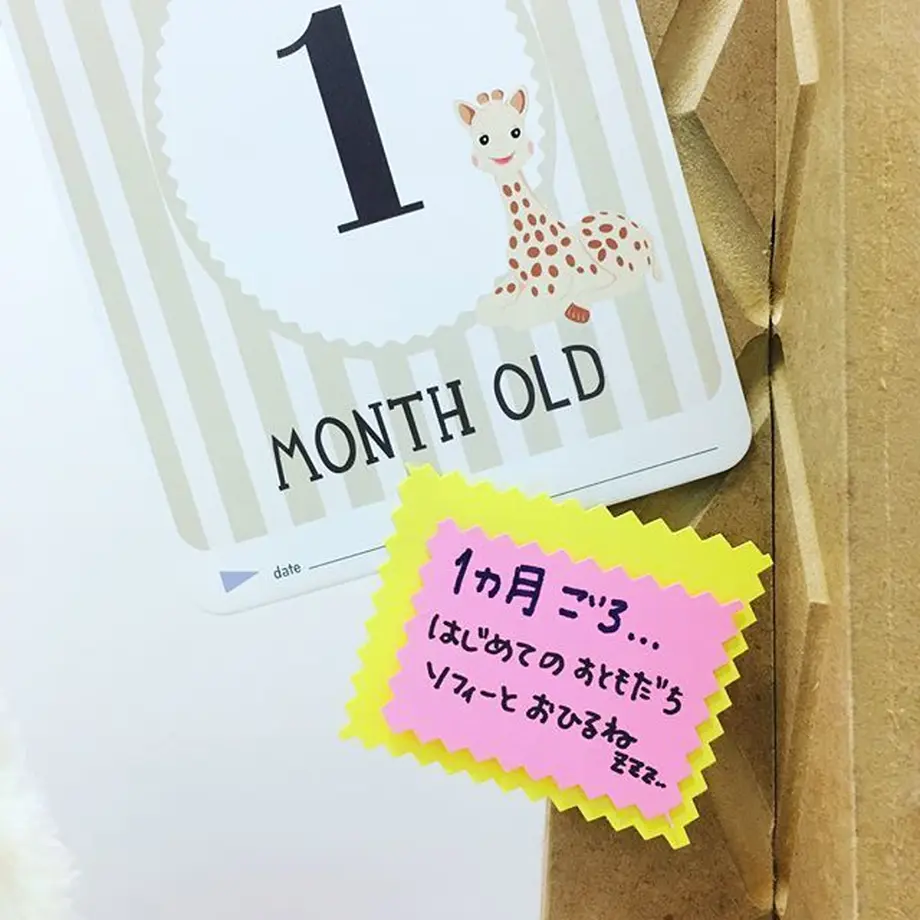 1
MONTH OLD
date
1ヵ月ごろ...
はじめてのおともだち
ソフィーとおひるね
zzz..